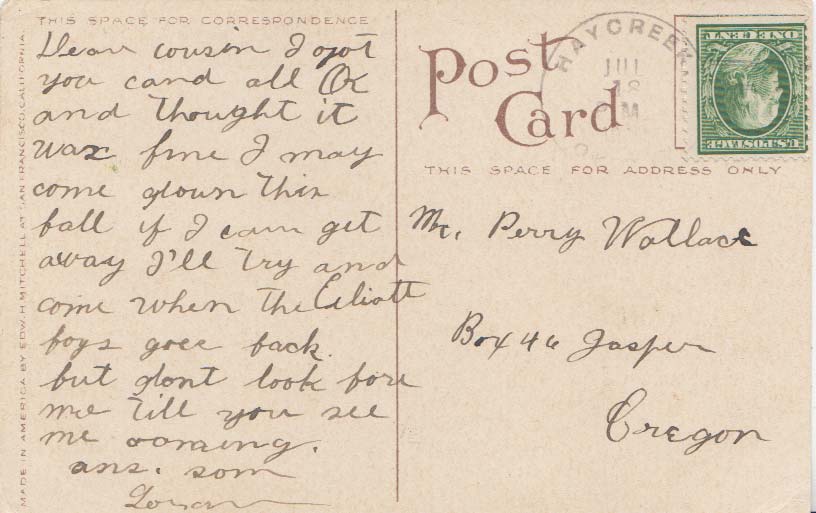 THIS SPACE FOR CORRESPONDENCE
Dear cousin I got
you card all OK
and thought it
was fine I may
come down this
fall if I can get
away I'll try and
come when the Eliott
boys goes back.
but dont look fore
me till you see
me coming.
ans. soon
MADE IN AMERICA BY EDW. H. MITCHELL AT SAN FRANCISCO, CALIFORNIA.
Post
Card
HAYCREEK
JUL
18
M
U.S. POSTAGE
ONE CENT
THIS SPACE FOR ADDRESS ONLY
Mr. Perry Wallace
Box 46 Jasper
Oregon